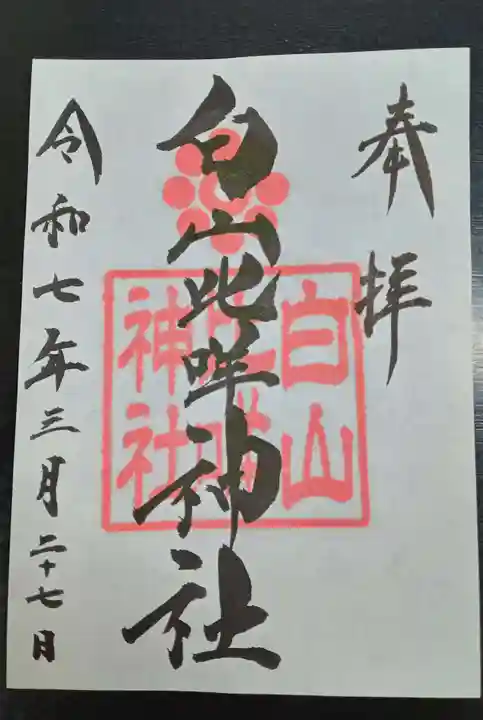 奉拝
白山比咩神社
白山比咩神社
令和七年三月二十七日